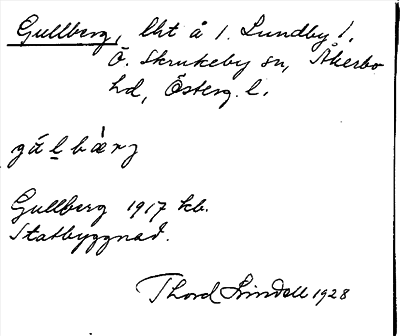 Gullberg, lht å 1. Lundby 1.
Ö. Skrukeby sn, Åkerbo
hd, Österg. l.
Gullberg 1917 kb.
Statbyggnad.
Thord Lindell 1928